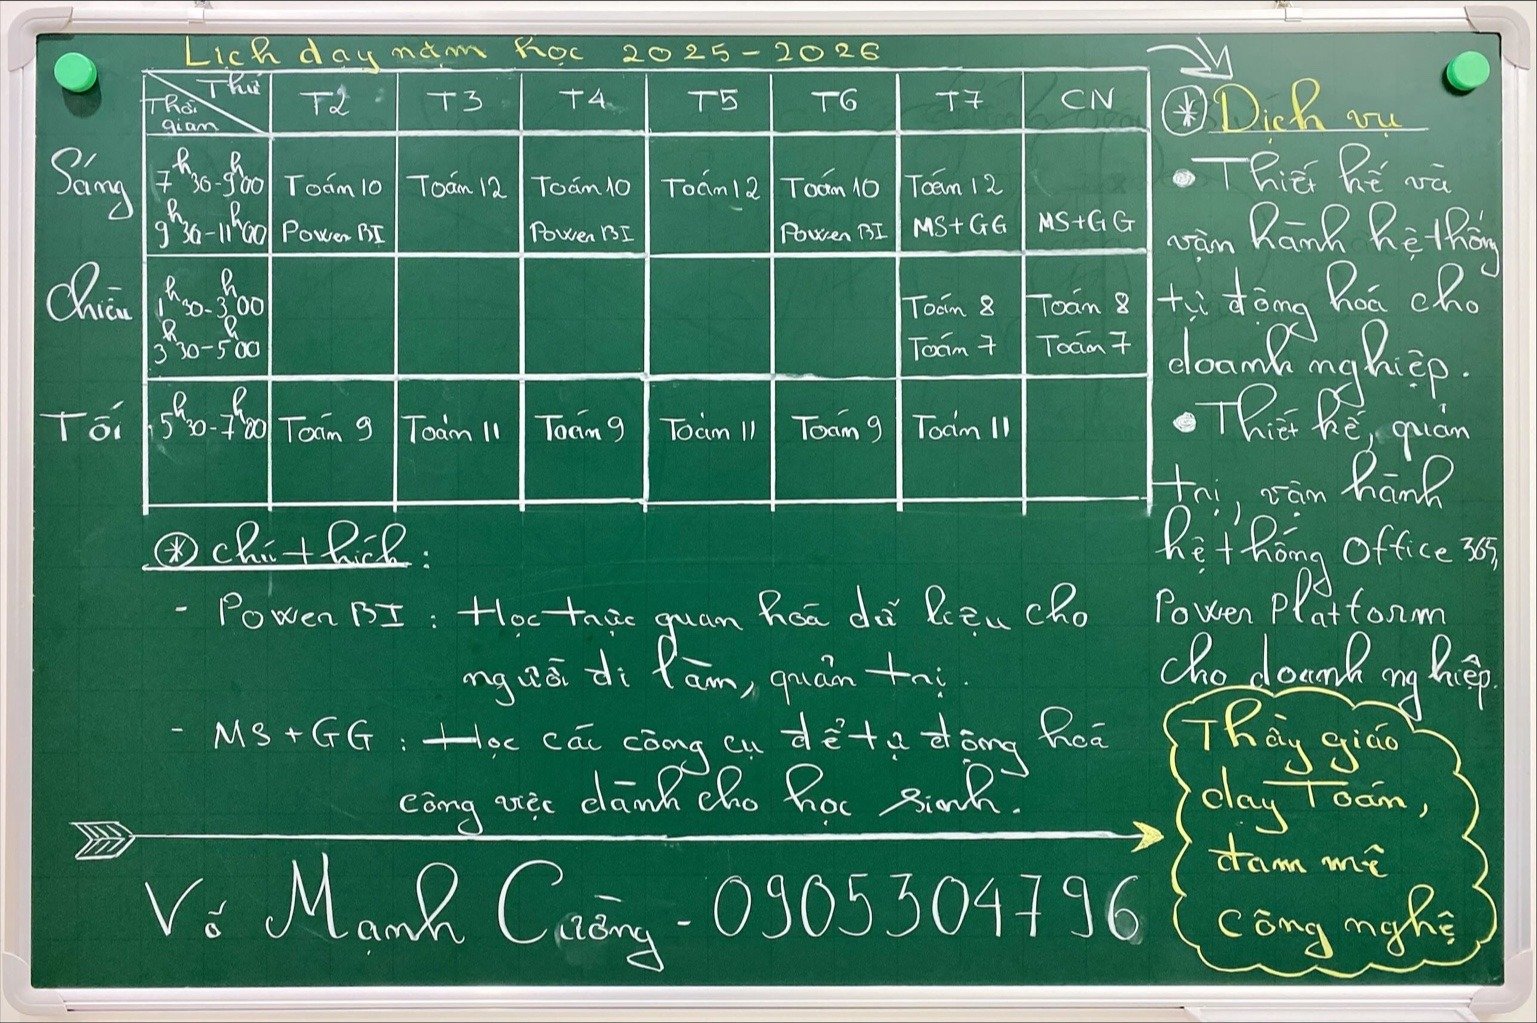 Lịch dạy năm học 2025-2026
Thứ
Thời gian
T2 T3 T4 T5 T6 T7 CN
Sáng
7h30-9h00 Toán 10 Toán 12 Toán 10 Toán 12 Toán 10 Toán 12
9h30-11h00 Power BI Power BI Power BI MS+GG MS+GG
Chiều
1h30-3h00 Toán 8 Toán 8
3h30-5h00 Toán 7 Toán 7
Tối
5h30-7h00 Toán 9 Toán 11 Toán 9 Toán 11 Toán 9 Toán 11
* Chú thích:
- Power BI : Học trực quan hoá dữ liệu cho
người đi làm, quản trị.
- MS + GG : Học các công cụ để tự động hoá
công việc dành cho học sinh.
Võ Mạnh Cường - 0905304796
* Dịch vụ
• Thiết kế và
vận hành hệ thống
tự động hoá cho
doanh nghiệp.
• Thiết kế, quản
trị, vận hành
hệ thống Office 365,
Power Platform
cho doanh nghiệp.
Thầy giáo
dạy Toán,
đam mê
công nghệ